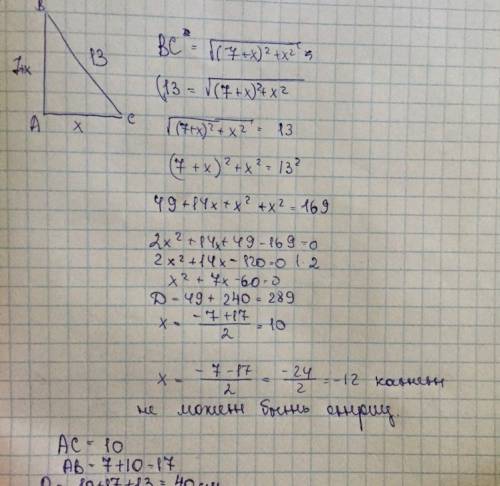 B
7+x
13
A
x
C
BC² = √((7+x)²+x²)
(13 = √((7+x)²+x²)
√((7+x)²+x²) = 13
(7+x)²+x² = 13²
49+14x+x²+x² = 169
2x²+14x+49-169=0
2x²+14x-120=0 |·2
x²+7x-60=0
D-49+240=289
x = (-7+17)/2 = 10
x = (-7-17)/2 = -24/2 = -12
не может быть отриц.
AC = 10
AB-7+10-17
10+17+13=40 см